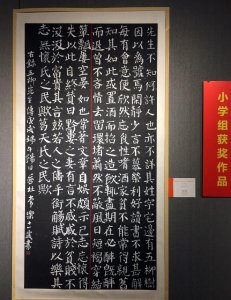 先生不知何許人也亦不詳其姓字宅邊有五柳樹
因以為號焉閑靜少言不慕榮利好讀書不求甚解
每有會意便欣然忘食性嗜酒家貧不能常得親舊
知其如此或置酒而招之造飲輒盡期在必醉既醉
而退曾不吝情去留環堵蕭然不蔽風日短褐穿結
簞瓢屢空晏如也常著文章自娛頗示己志忘懷得
失以此自終贊曰黔婁之妻有言不戚戚於貧賤不
汲汲於富貴其言茲若人之儔乎銜觴賦詩以樂其
志無懷氏之民歟葛天氏之民歟
右錄五柳先生傳
小学组获奖作品